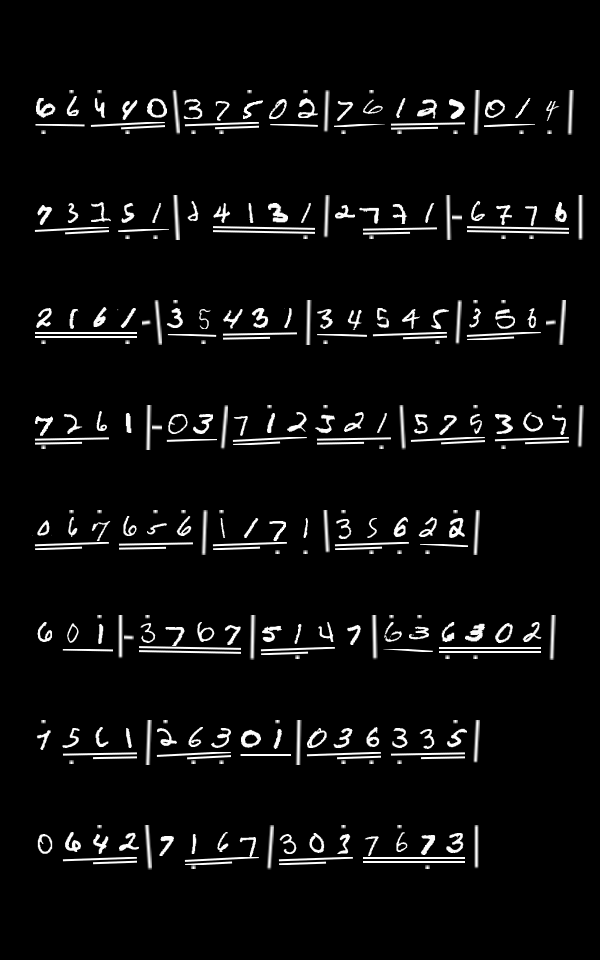 66440|37502|76127|014|
73151|24131|2771|-6776|
2161-|35431|34545|356-|
7261|-03|712521|575307|
067656|1171|35622|
601|-3767|5147|636302|
7561|26301|036335|
0642|7167|3037673|